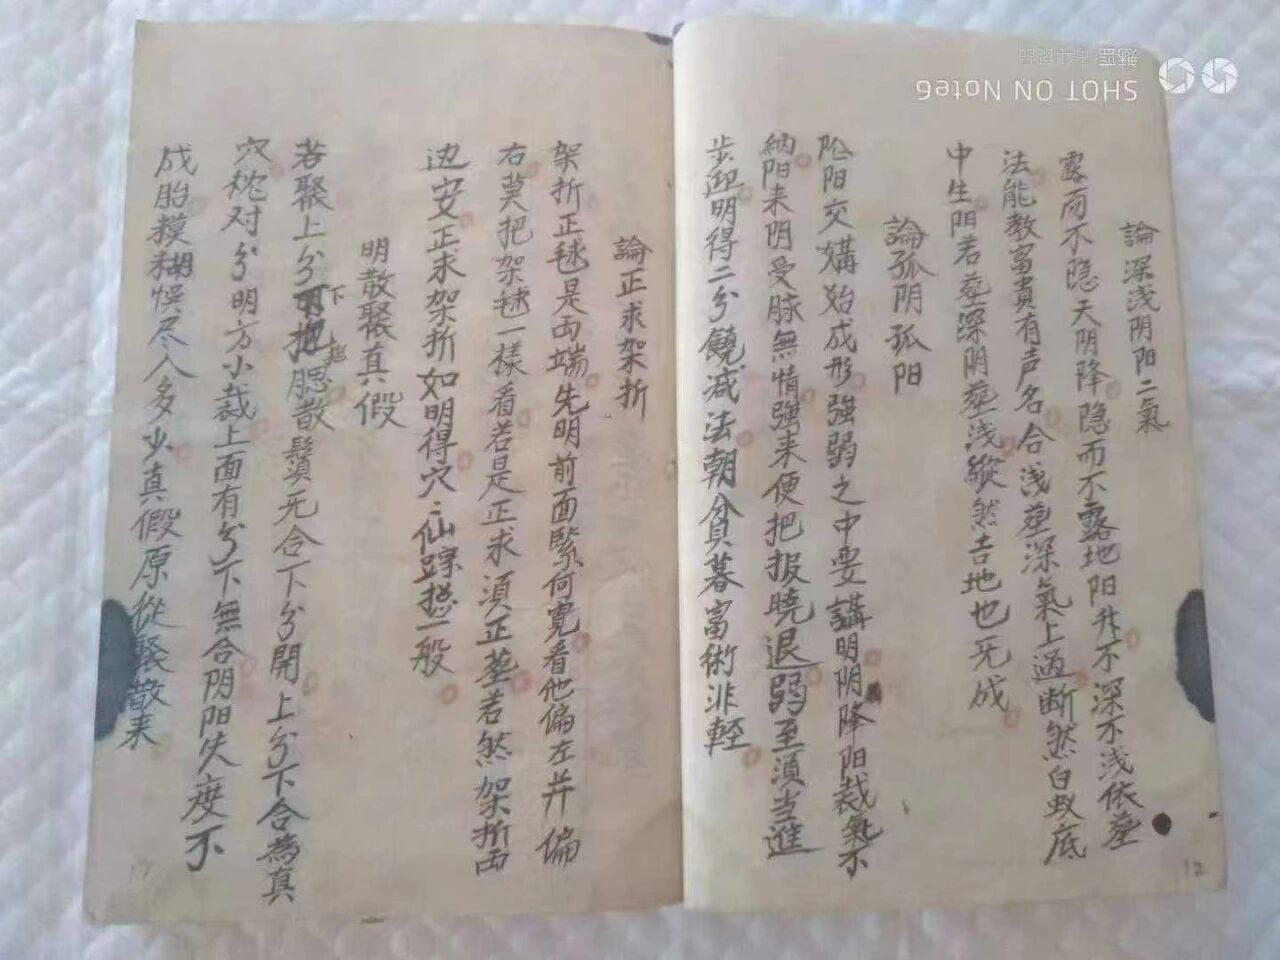 論深浅阴阳二氣
露而不隐天阴降隐而不露地阳升不深不浅依塟
法能教富貴有声名合浅塟深氣上過断然白蚁底
中生阳若塟深阴塟浅縱然吉地也旡成
論孤阴孤阳
阴阳交媾始成形強弱之中要講明阴降阳裁氣不
納阳来阴受脉無情強来便把报曉退弱至須当進
步迎明得二分饒减法朝貧暮富術非輕
論正求架折
架折正毬是両端先明前面緊何寛看他偏左并偏
右莫把架毬一樣看若是正求須正塟若然架折両
边安正求架折如明得穴穴仙踪揔一般
明散聚真假
若聚上分下把腮散鬚旡合下分開上分下合為真
穴枕对分明方小裁上面有分下無合阴阳失度不
成胎糢糊悞尽人多少真假原從聚散来
12
SHOT ON Note6
魅蓝青年良品